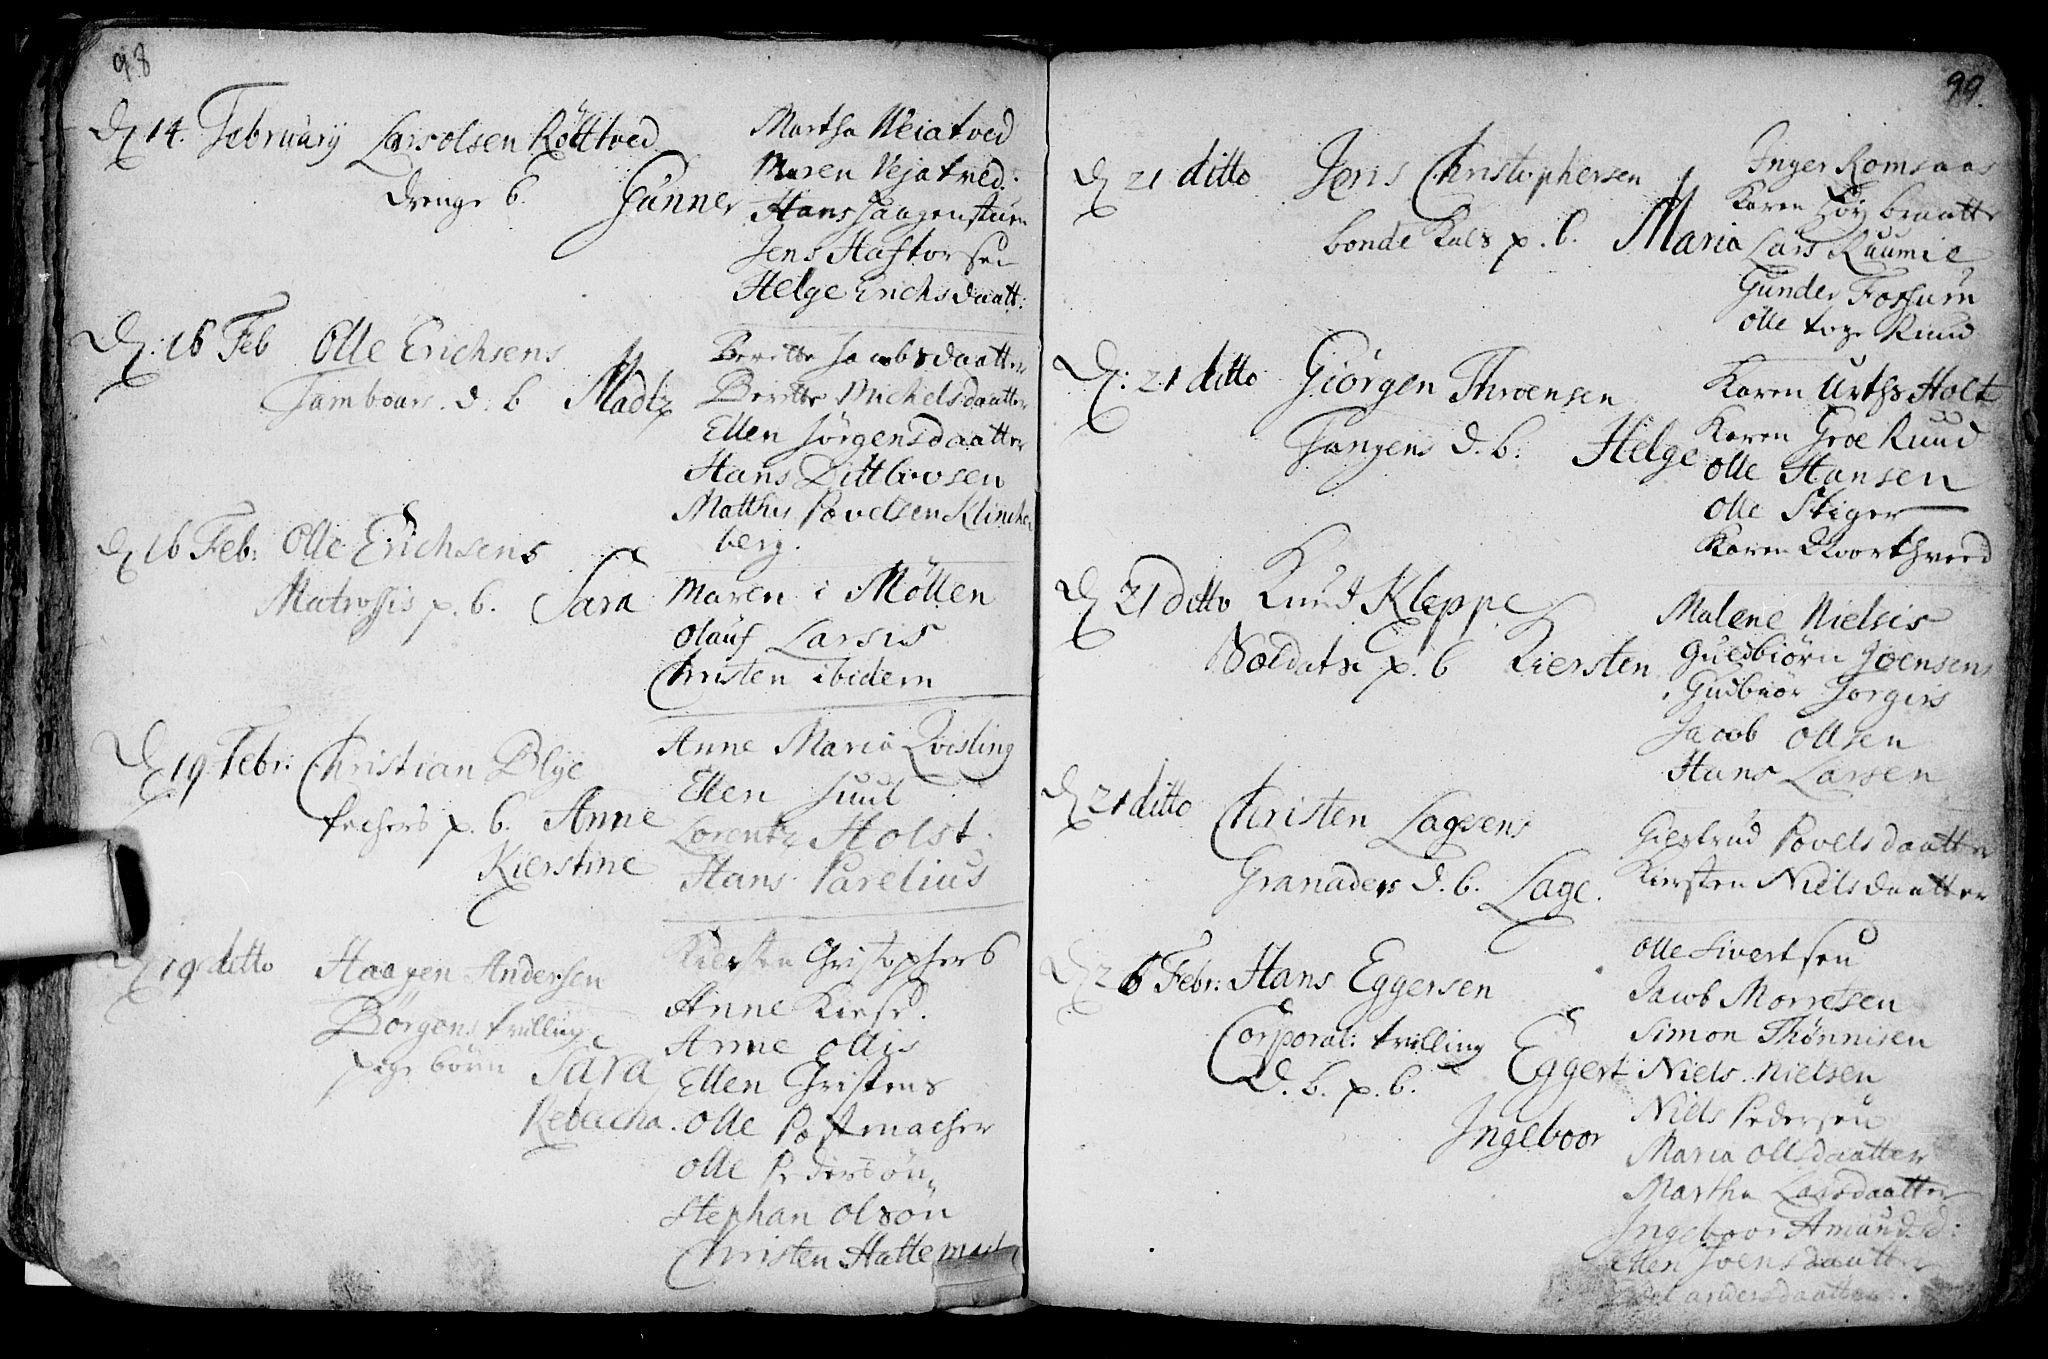 98
D 14. Februarij Lars olsen Röttved
drenge b. Gunner
Martha Weiatved
Maren Vejatved.
Hans Haagensturn
Jens Haftorsen
Helge Erichsdaatt:
D: 16 Feb Olle Erichsens
Tambours. d. b Madtz
Beritte Jacobsdaatter
Beritte Michelsdaatter
Ellen Jörgensdaatter
Hans Dittlovsen
Matthis Povelsen Klincken
berg.
D 16 Feb: Olle Erichsens
Matrossis p. b. Sara
Maren i Möllen
Oluf Larsis
Christen ibidem
D 19 Febr: Christian Blye
techers p. b. Anne
Kierstine
Anne Maria Qvisling
Ellen Juul
Lorentz Holst.
Hans Parelius
D 19 ditto Haagen Andersen
Börgens trilling
pige börn Sara
Rebecha.
Kiersten Christophers
Anne
Anne Ollis
Ellen Christens
Olle Postmacher
Olle Pedersön
Stephan Olson
Christen Hattemach
99.
D 21 ditto Joris Christophersen
bonde Kals p. b. Maria
Inger Romsaas
Karen braatte
Lars Ruumie
Gunder Fossum
Olle Ruud
D: 21 ditto Giörgen Throensen
Tangens d. b. Helge
Karen Urths Holt
Karen Groe Ruud
Olle Hansen
Olle Stiger
Karen
D 21 ditto Knud Kleppe
Soldats p. b Kiersten
Malene Nielsis
Gudbiörn Joensens
Gudbiör Jorgins
Jacob Ollsen
Hans Larsen
D 21 ditto Christen Lagesens
Granaders d. b. Lage.
Giertrud Povelsdaatter
Kiersten Nielsdaatter
D 26 Febr: Hans Eggersen
Corporal: trilling Eggert
d. b. p. b.
Ingeboor
Olle Sivertsen
Jacob Morretsen
Simon Thönnisen
Niels Nielsen
Niels Pedersen
Maria Ollsdaatter
Martha Larsdaatter
Ingeboor Amundsd:
Ellen Joensdaatter
andersdaatter.